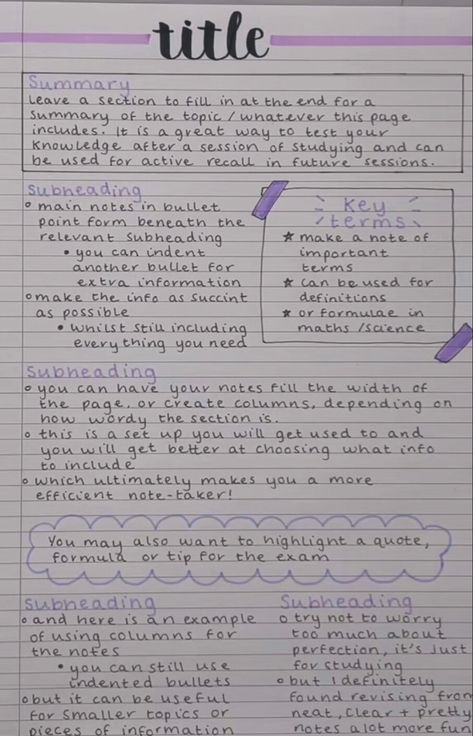 title
Summary
Leave a section to fill in at the end for a
summary of the topic / whatever this page
includes. It is a great way to test your
knowledge after a session of studying and can
be used for active recall in future sessions.
Subheading
o main notes in bullet
point form beneath the
relevant subheading
• you can indent
another bullet for
extra information
o make the info as succint
as possible
• whilst still including
everything you need
Key
terms
★ make a note of
important
terms
★ can be used for
definitions
★ or formulae in
maths /science
Subheading
o you can have your notes fill the width of
the page, or create columns, depending on
how wordy the section is.
o this is a set up you will get used to and
you will get better at choosing what info
to include
o which ultimately makes you a more
efficient note-taker!
You may also want to highlight a quote,
formula or tip for the exam
Subheading
o and here is an example
of using columns for
the notes
• you can still use
indented bullets
o but it can be useful
for smaller topics or
pieces of information
Subheading
o try not to worry
too much about
perfection, it's just
for studying
o but I definitely
found revising from
neat, clear + pretty
notes alot more fun